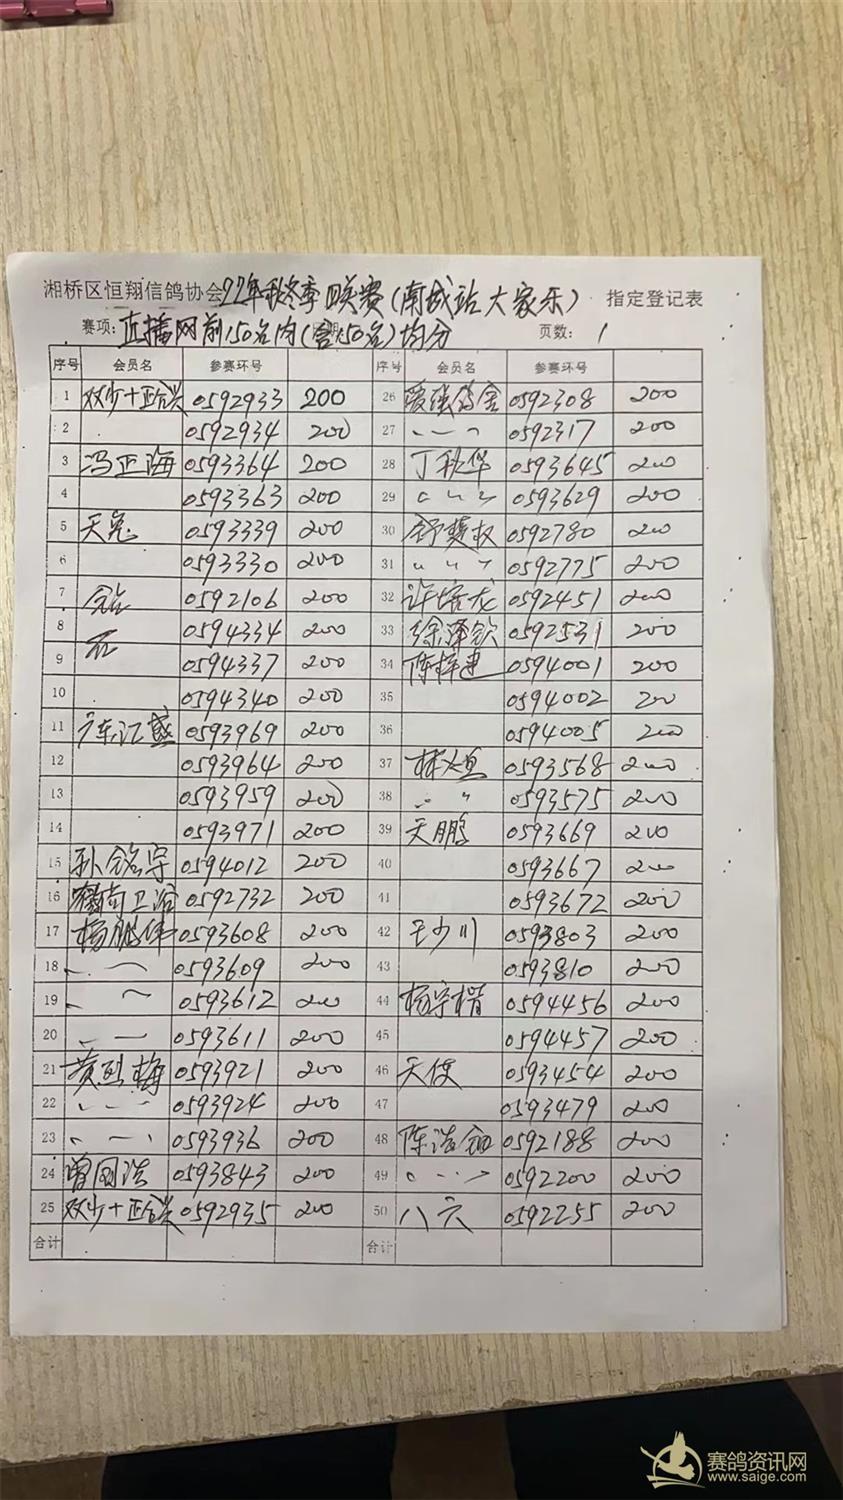 湘桥区恒翔信鸽协会22年秋冬季联赛(南城站大家乐) 指定登记表
赛项: 直播网前150名内(含150名)均分 页数: 1
序号 会员名 参赛环号 序号 会员名 参赛环号
1 双少十正合兴 0592933 200 26 爱强鸽舍 0592308 200
2 0592934 200 27 0592317 200
3 冯正海 0593364 200 28 丁秋华 0593645 200
4 0593363 200 29 0593629 200
5 天宠 0593339 200 30 舒楚权 0592780 200
6 0593330 200 31 0592775 200
7 0592106 200 32 许培龙 0592451 200
8 0594334 200 33 徐泽钦 0592531 200
9 0594337 200 34 陈梓建 0594001 200
10 0594340 200 35 0594002 200
11 广东江盛 0593969 200 36 0594005 200
12 0593964 200 37 0593568 200
13 0593959 200 38 0593575 200
14 0593971 200 39 天鹏 0593669 200
15 孙铭宇 0594012 200 40 0593667 200
16 卫浴 0592732 200 41 0593672 200
17 杨鹏伟 0593608 200 42 王少川 0593803 200
18 0593609 200 43 0593810 200
19 0593612 200 44 杨宇楷 0594456 200
20 0593611 200 45 0594457 200
21 黄烈梅 0593921 200 46 天使 0593454 200
22 0593924 200 47 0593479 200
23 0593936 200 48 陈浩 0592188 200
24 曾网浩 0593843 200 49 0592200 200
25 双少十正合兴 0592935 200 50 八六 0592255 200
合计 合计
赛鸽资讯网
www.saige.com